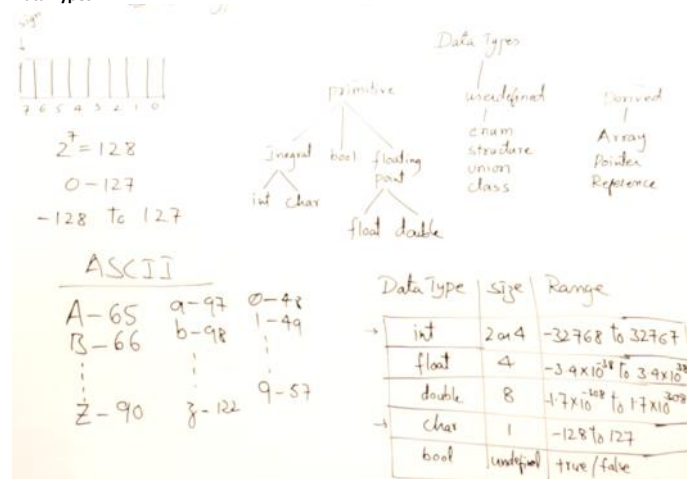 sign
7 6 5 4 3 2 1 0
2^7 = 128
0 – 127
-128 to 127
Data Types
primitive
Integral bool floating point
int char
float double
userdefined
enum
structure
union
class
Derived
Array
Pointer
Reference
ASCII
A – 65 a – 97 0 – 48
B – 66 b – 98 1 – 49
Z – 90 z – 122 9 – 57
Data Type size Range
int 2 or 4 -32768 to 32767
float 4 -3.4×10^-38 to 3.4×10^38
double 8 -1.7×10^-308 to 1.7×10^308
char 1 -128 to 127
bool undefined true / false